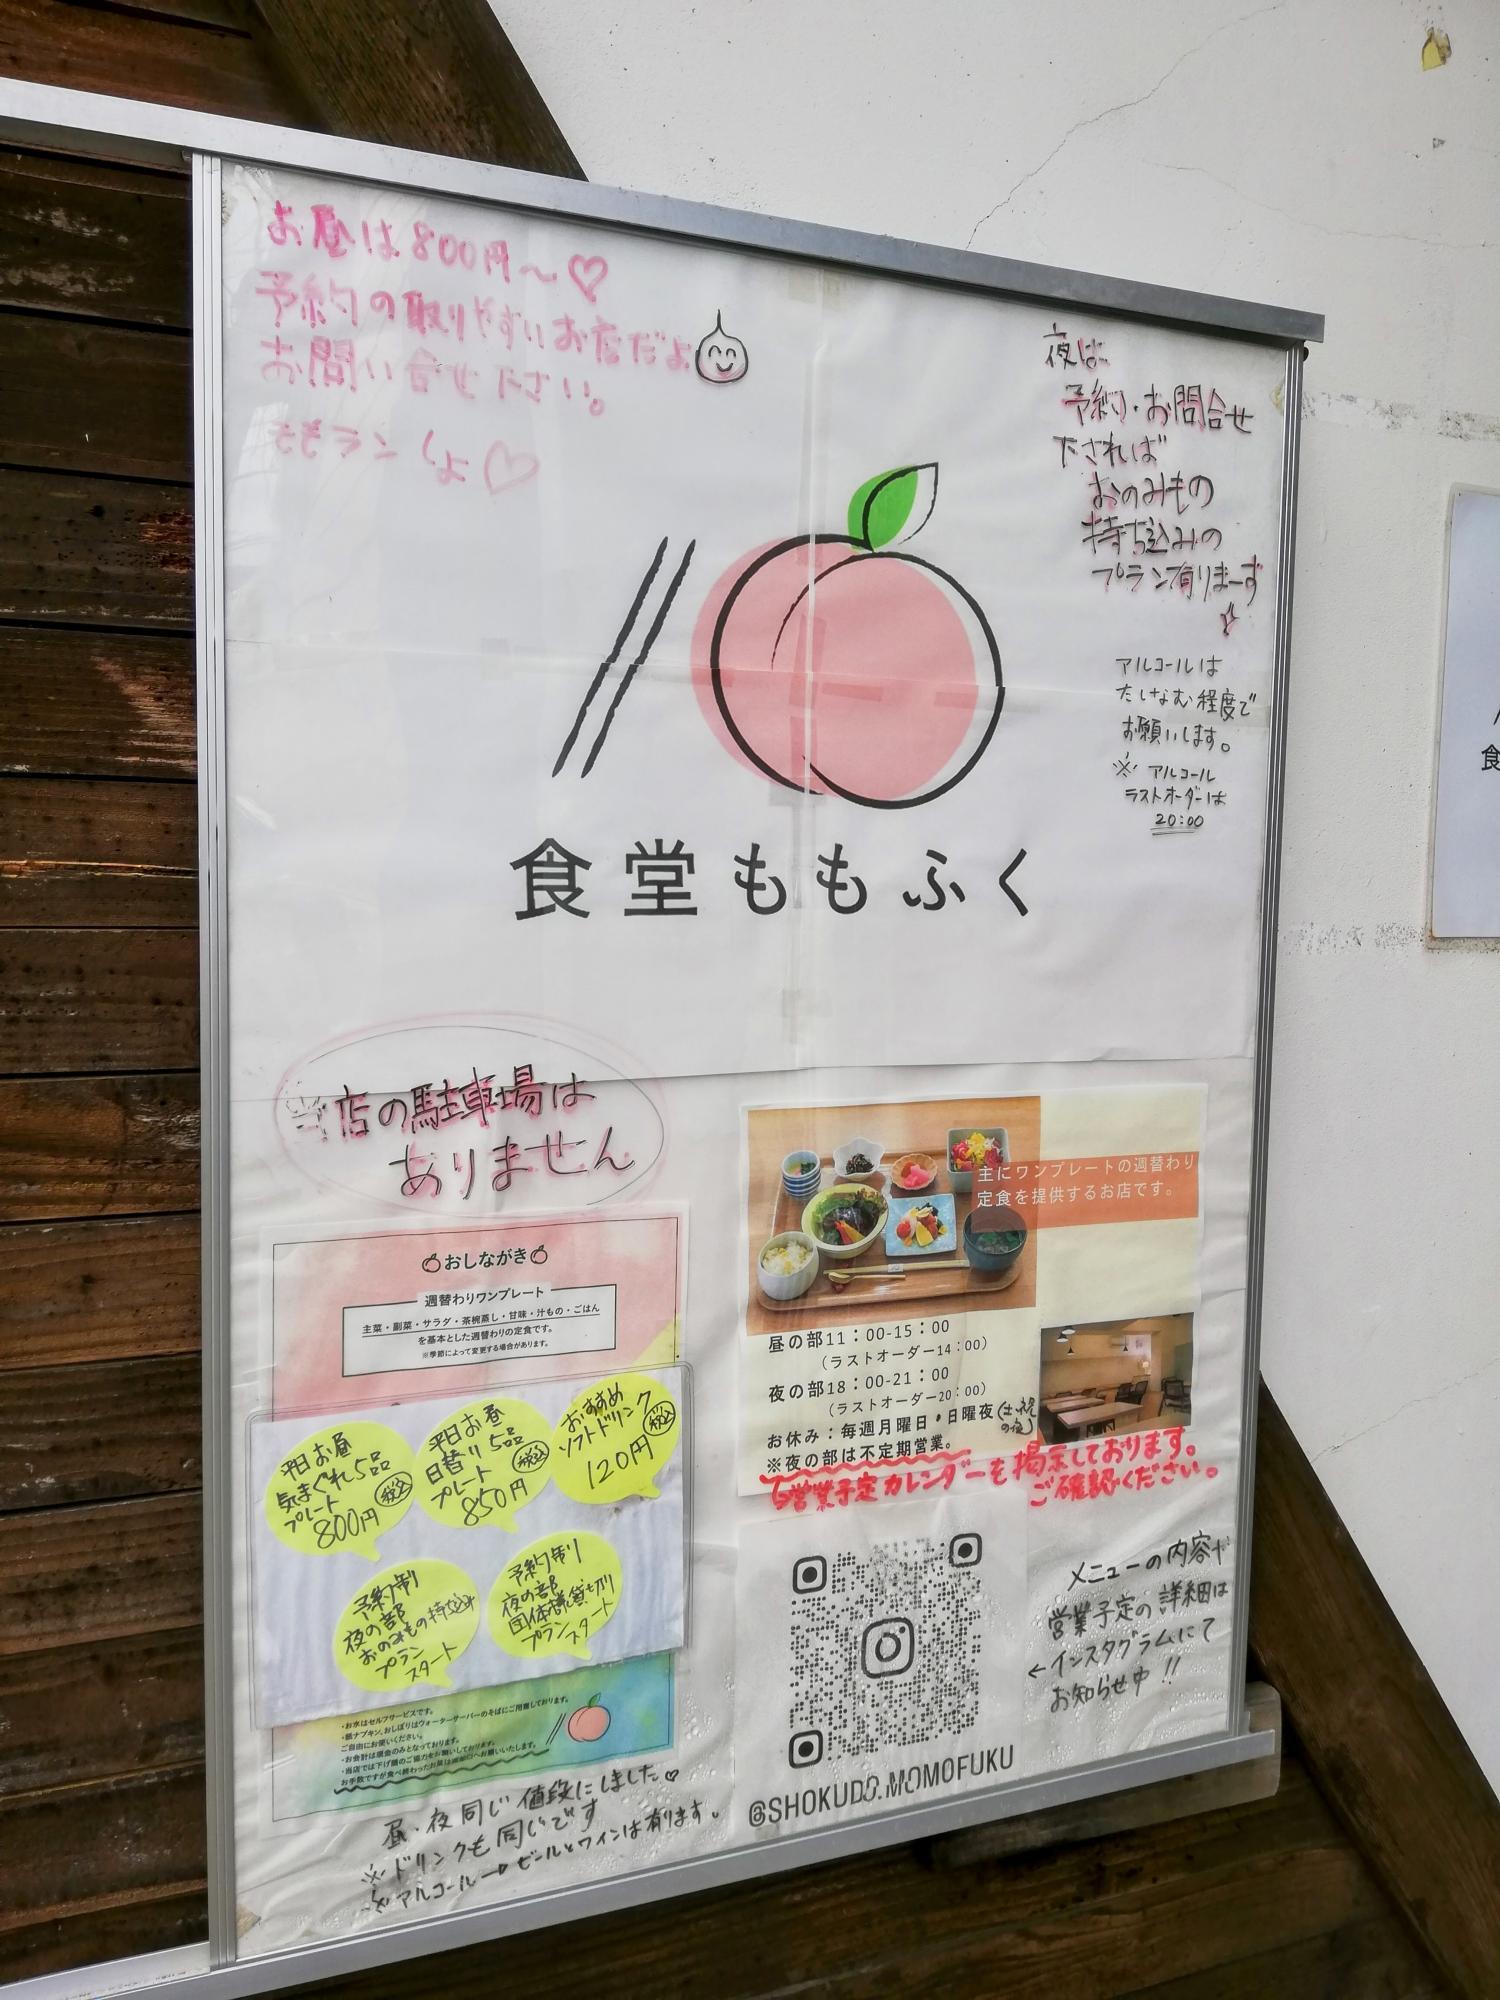 お昼は800円〜♡
予約の取りやすいお店だよ
お問い合せ下さい。
ももランしよ♡
夜は
予約・お問合せ
下されば
おのみもの
持ち込みの
プラン有りまーす
アルコールは
たしなむ程度で
お願いします。
※アルコール
ラストオーダーは
20:00
食堂ももふく
当店の駐車場は
ありません
おしながき
週替わりワンプレート
主菜・副菜・サラダ・茶碗蒸し・甘味・汁もの・ごはん
を基本とした週替わりの定食です。
※季節によって変更する場合があります。
平日お昼
気まぐれ5品
プレート 税込
800円
平日お昼
日替り5品
プレート 税込
850円
おすすめ
ソフトドリンク
120円 税込
予約制
夜の部
おのみもの持ち込み
プラン
スタート
予約制
夜の部
団体様貸し切り
プランスタート
・お水はセルフサービスです。
・紙ナプキン、おしぼりはウォーターサーバーのそばにご用意しております。
ご自由にお使いください。
・お会計は現金のみとなっております。
・当店では下げ膳のご協力をお願いしております。
昼・夜同じ値段にしました♡
※ドリンクも同じです
※アルコール→ビールとワインは有ります。
主にワンプレートの週替わり
定食を提供するお店です。
昼の部11：00-15：00
（ラストオーダー14：00）
夜の部18：00-21：00
（ラストオーダー20：00）
お休み：毎週月曜日・日曜夜(土・祝の夜)
※夜の部は不定期営業。
営業予定カレンダーを掲示しております。
ご確認ください。
メニューの内容や
営業予定の詳細は
←インスタグラムにて
お知らせ中!!
@SHOKUDO.MOMOFUKU
食